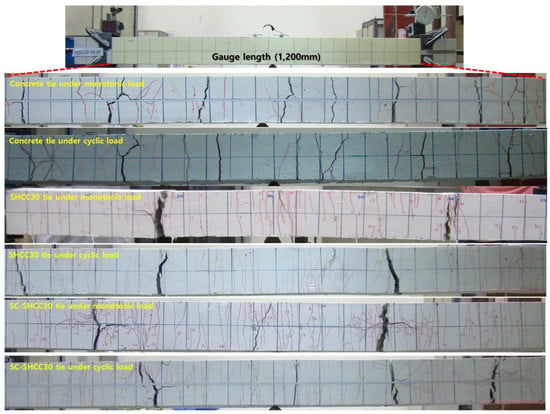 Gauge length (1,200mm)
Concrete tie under monotonic load
Concrete tie under cyclic load
SHCC30 tie under monotonic load
SHCC30 tie under cyclic load
SC-SHCC30 tie under monotonic load
SC-SHCC30 tie under cyclic load